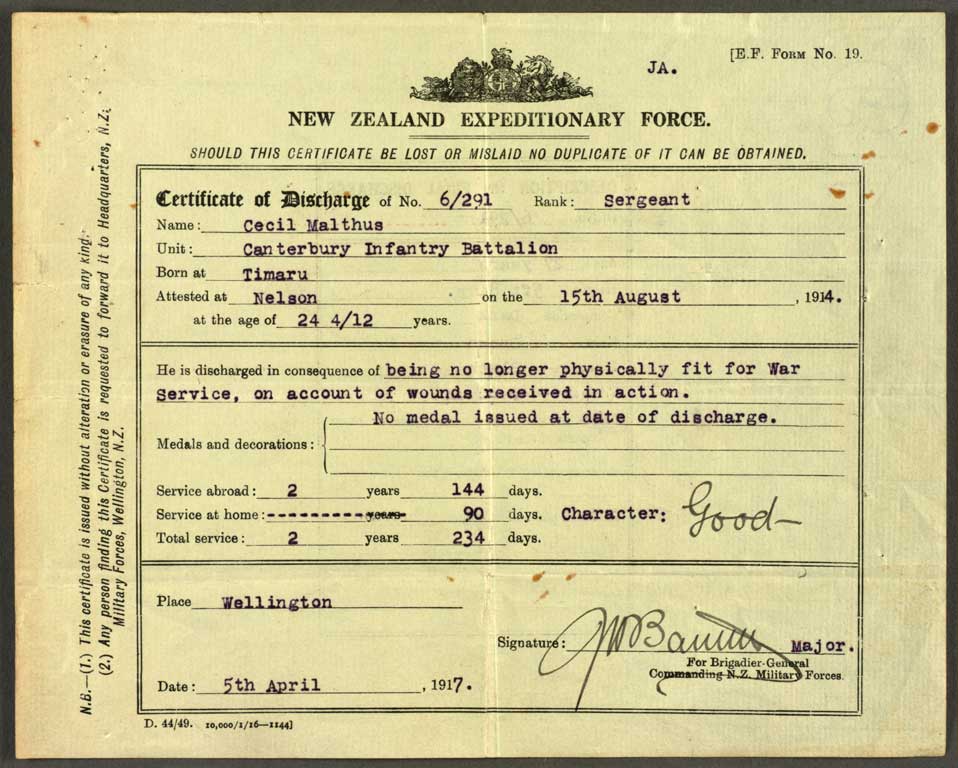 JA.
[E.F. FORM NO. 19.
NEW ZEALAND EXPEDITIONARY FORCE.
SHOULD THIS CERTIFICATE BE LOST OR MISLAID NO DUPLICATE OF IT CAN BE OBTAINED.
Certificate of Discharge of No. 6/291 Rank: Sergeant
Name: Cecil Malthus
Unit: Canterbury Infantry Battalion
Born at Timaru
Attested at Nelson on the 15th August, 1914.
at the age of 24 4/12 years.
He is discharged in consequence of being no longer physically fit for War
Service, on account of wounds received in action.
No medal issued at date of discharge.
Medals and decorations:
Service abroad: 2 years 144 days.
Service at home: ---------- years 90 days. Character: Good
Total service: 2 years 234 days.
Place Wellington
Signature: Major.
For Brigadier-General
Commanding N.Z. Military Forces.
Date: 5th April, 1917.
D. 44/49. 10,000/1/16—1144]
N.B.—(1.) This certificate is issued without alteration or erasure of any kind.
(2.) Any person finding this Certificate is requested to forward it to Headquarters, N.Z.
Military Forces, Wellington, N.Z.